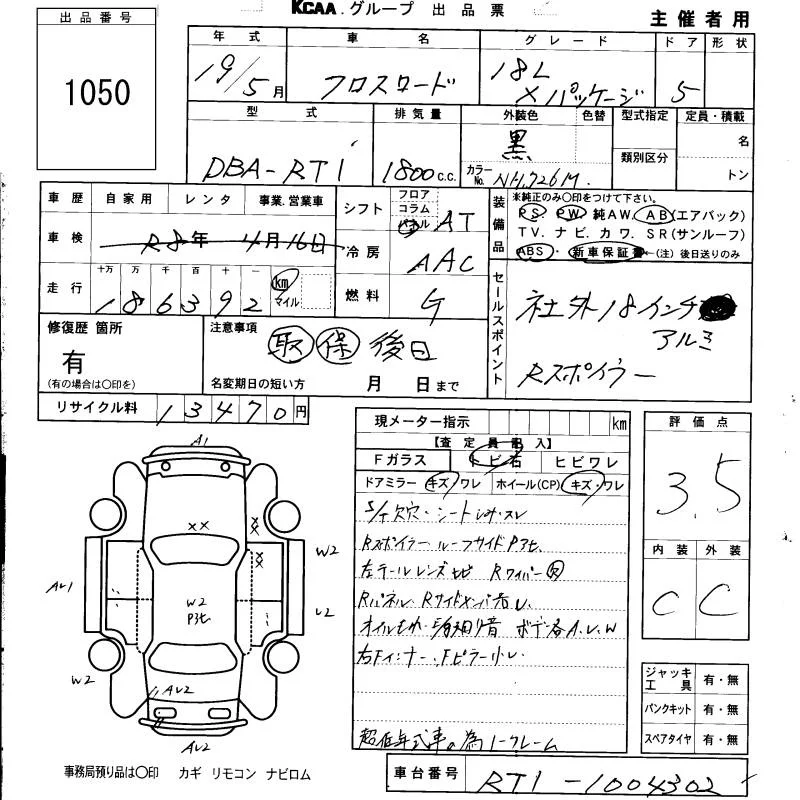 KCAA.グループ 出品票
主催者用
出品番号
1050
年式 車名 グレード ドア 形状
19/5月 クロスロード 18L Xパッケージ 5
型式 排気量 外装色 色替 型式指定 定員・積載
DBA-RT1 1800c.c. 黒 名
カラーNo. NH726M 類別区分 トン
車歴 自家用 レンタ 事業.営業車
車検 R8年 4月16日
走行 十万 万 千 百 十 一 km マイル
186392
シフト フロア コラム パネル AT
冷房 AAC
燃料 G
装備品
※純正のみ〇印をつけて下さい。
PS PW 純AW. AB(エアバック)
TV. ナビ. カワ. SR(サンルーフ)
ABS・新車保証書←(注)後日送りのみ
セールスポイント
社外18インチ
アルミ
Rスポイラー
修復歴 箇所
有
(有の場合は〇印を)
注意事項
取 保 後日
名変期日の短い方 月 日まで
リサイクル料 13470円
現メーター指示 km
【査定員記入】
Fガラス トビ石 ヒビワレ
ドアミラー キズ/ワレ ホイール(CP) キズ・ワレ
S/T欠穴・シート シミ・スレ
Rスポイラー ルーフサイドPヨモ
左テールレンズヒビ Rワイパー欠
オイルモレ・ ボデー各A.U.W
評価点
3.5
内装 外装
C C
A1
XX
XX
XX
W2
AU1
U2
W2
Pヨモ
W2
AU2
AU2
超低年式車の為ノークレーム
ジャッキ工具 有・無
パンクキット 有・無
スペアタイヤ 有・無
事務局預り品は〇印 カギ リモコン ナビロム
車台番号 RT1-1004302